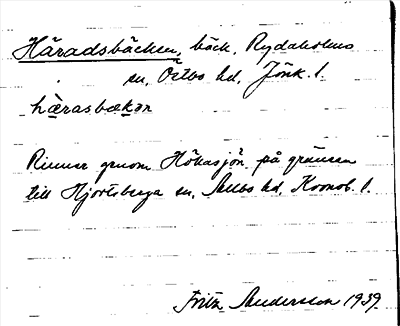 Häradsbäcken, bäck, Rydaholms
sn, Östbo hd, Jönk. l.
hǟrasbækən
Rinner genom Hökasjön på gränsen
till Hjortsberga sn, Allbo hd, Kronob. l.
Fritz Andersson 1939